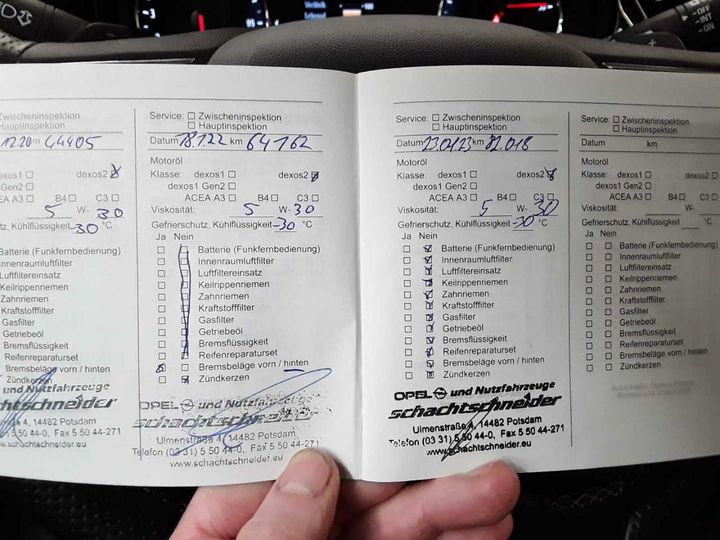 Service: ☐ Zwischeninspektion
☐ Hauptinspektion
Datum 18.1.22 km 64162
Motoröl
Klasse: dexos1 ☐ dexos2 ☒
dexos1 Gen2 ☐
ACEA A3 ☐ B4 ☐ C3 ☐
Viskosität: 5 W- 30
Gefrierschutz, Kühlflüssigkeit -30 °C
Ja Nein
Batterie (Funkfernbedienung)
Innenraumluftfilter
Luftfiltereinsatz
Keilrippenriemen
Zahnriemen
Kraftstofffilter
Gasfilter
Getriebeöl
Bremsflüssigkeit
Reifenreparaturset
Bremsbeläge vorn / hinten
Zündkerzen
OPEL und Nutzfahrzeuge
schachtschneider
Ulmenstraße 4, 14482 Potsdam
Telefon (03 31) 5 50 44-0, Fax 5 50 44-271
www.schachtschneider.eu
Zwischeninspektion
Hauptinspektion
12.20 km 44405
dexos1 ☐ dexos2 ☒
Gen2 ☐
ACEA A3 ☐ B4 ☐ C3 ☐
5 W- 30
Kühlflüssigkeit -30 °C
Batterie (Funkfernbedienung)
Innenraumluftfilter
Luftfiltereinsatz
Keilrippenriemen
Zahnriemen
Kraftstofffilter
Gasfilter
Getriebeöl
Bremsflüssigkeit
Reifenreparaturset
Bremsbeläge vorn / hinten
Zündkerzen
und Nutzfahrzeuge
schachtschneider
4, 14482 Potsdam
5 50 44-0, Fax 5 50 44-271
www.schachtschneider.eu
Service: ☐ Zwischeninspektion
☐ Hauptinspektion
Datum 23.01.23 km 82.018
Motoröl
Klasse: dexos1 ☐ dexos2 ☒
dexos1 Gen2 ☐
ACEA A3 ☐ B4 ☐ C3 ☐
Viskosität: 5 W- 30
Gefrierschutz, Kühlflüssigkeit -30 °C
Ja Nein
Batterie (Funkfernbedienung)
Innenraumluftfilter
Luftfiltereinsatz
Keilrippenriemen
Zahnriemen
Kraftstofffilter
Gasfilter
Getriebeöl
Bremsflüssigkeit
Reifenreparaturset
Bremsbeläge vorn / hinten
Zündkerzen
OPEL und Nutzfahrzeuge
schachtschneider
Ulmenstraße 4, 14482 Potsdam
Telefon (03 31) 5 50 44-0, Fax 5 50 44-271
www.schachtschneider.eu
Service: ☐ Zwischeninspektion
☐ Hauptinspektion
Datum km
Motoröl
Klasse: dexos1 ☐ dexos2 ☐
dexos1 Gen2 ☐
ACEA A3 ☐ B4 ☐ C3 ☐
Viskosität: W-
Gefrierschutz, Kühlflüssigkeit °C
Ja Nein
Batterie (Funkfernbedienung)
Innenraumluftfilter
Luftfiltereinsatz
Keilrippenriemen
Zahnriemen
Kraftstofffilter
Gasfilter
Getriebeöl
Bremsflüssigkeit
Reifenreparaturset
Bremsbeläge vorn / hinten
Zündkerzen
OFF
INT
ON